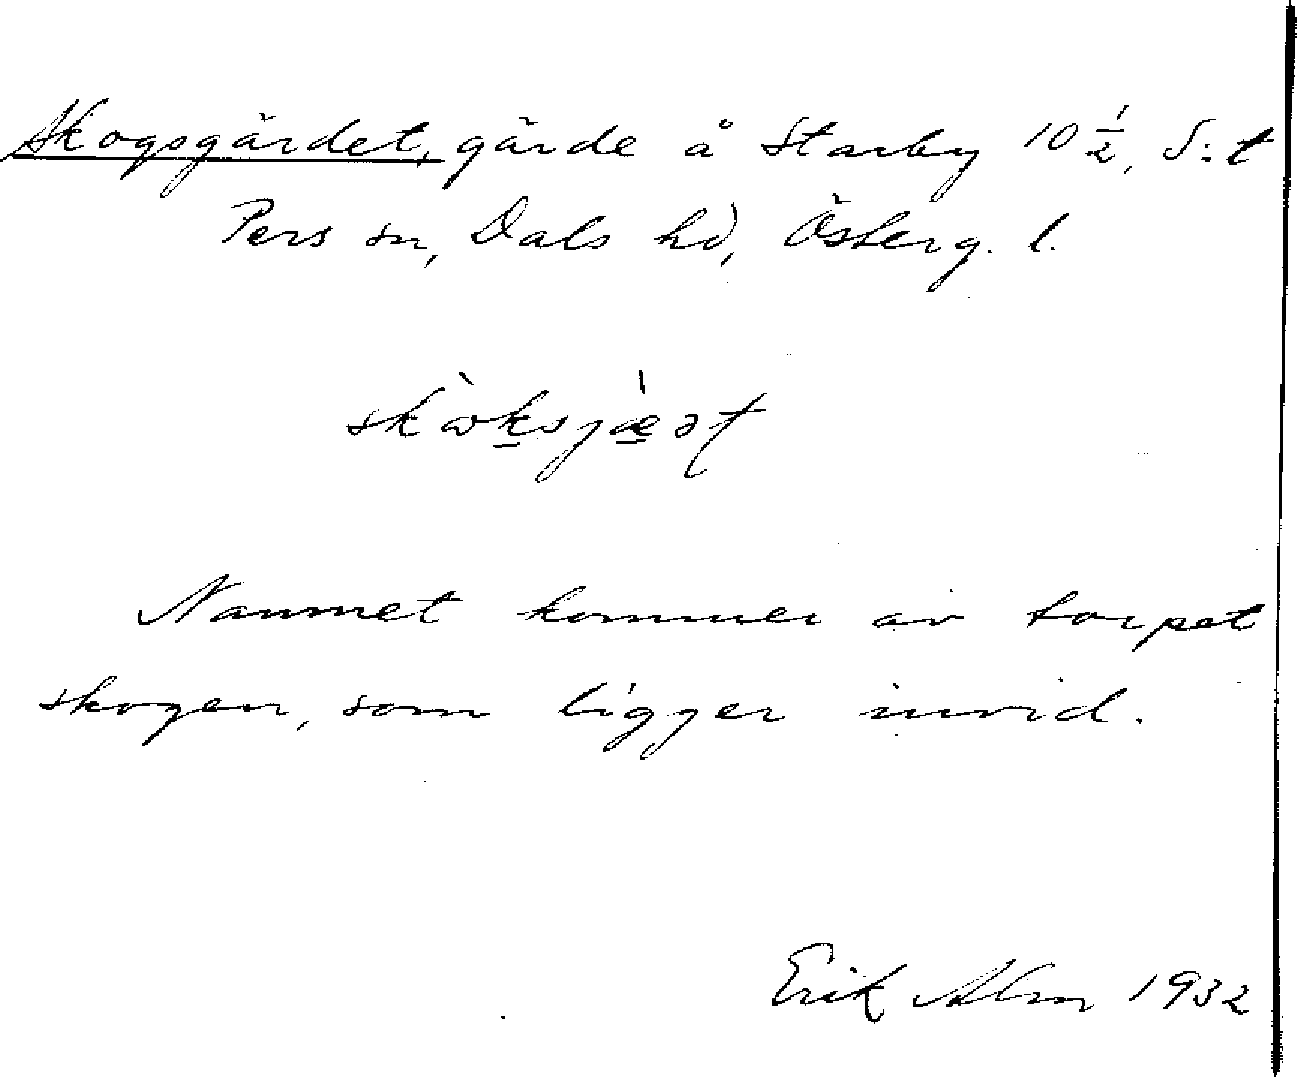 Skogsgärdet, gärde å Starby 10 1/2, S:t
Pers sn, Dals hd, Österg. l.
Namnet kommer av torpet
skogen, som ligger invid.
Erik Alm 1932